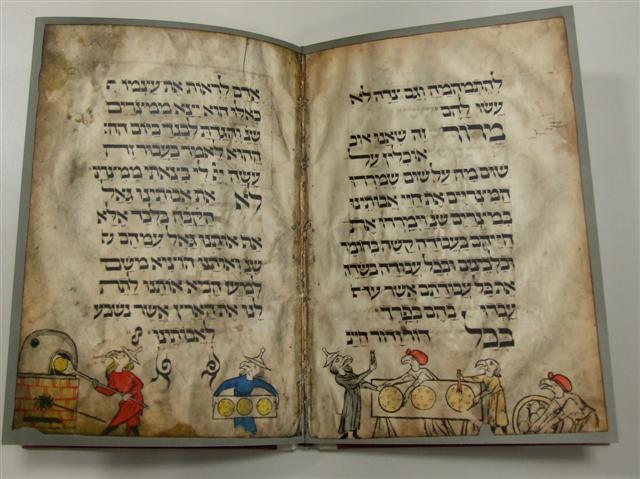 להתמהמה וגם צדה לא
עשו להם
מרור זה שאנו אוכ
אוכלין על
שום מה על שום שמררו
המצרים את חיי אבותינו
במצרים שנ וימררו את
חייהם בעבודה קשה בחומר
ובלבינים ובכל עבודה בשדה
את כל עבודתם אשר
עבדו בהם בפרך
בכל דור ודור חייב
אדם לראות את עצמו
כאלו הוא יצא ממצרים
שנ והגדת לבנך ביום הה
ההוא לאמר בעבור זה
עשה יי לי בצאתי ממצרים
לא את אבותינו גאל
הקבה בלבד אלא
את אותנו גאל עמהם ש
שנ ואותנו הוציא משם
למען הביא אותנו לתת
לנו את הארץ אשר נשבע
לאבותינו